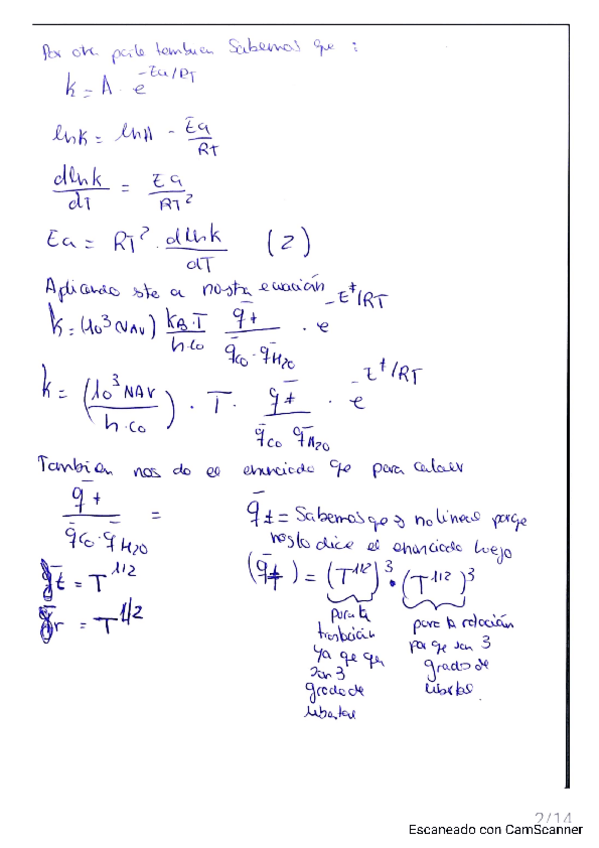 Por otra parte tambien Sabemos que :
k = A · e^-Ea/RT
lnk = lnA - Ea/RT
dlnk/dT = Ea/RT²
Ea = RT² · dlnk/dT (2)
Aplicando ste a nostra ecuación
k = (10³ NAV) kB·T/h·co q̄‡/q̄co·q̄H2O · e^-E‡/RT
k = (10³ NAV/h·co) · T · q̄‡/q̄co q̄H2O · e^-E‡/RT
Tambien nos da el enunciado qe para calcular
q̄‡/q̄co·q̄H2O =
q̄t = T^1/2
q̄r = T^1/2
q̄‡ = Sabemos qe es no lineal porqe
nosto dice el enunciado luego
(q̄‡) = (T^1/2)³ · (T^1/2)³
para la
traslación
ya qe qe
son 3
grados de
libertad
para la rotación
porqe son 3
grados de
libertad.
2/14
Escaneado con CamScanner